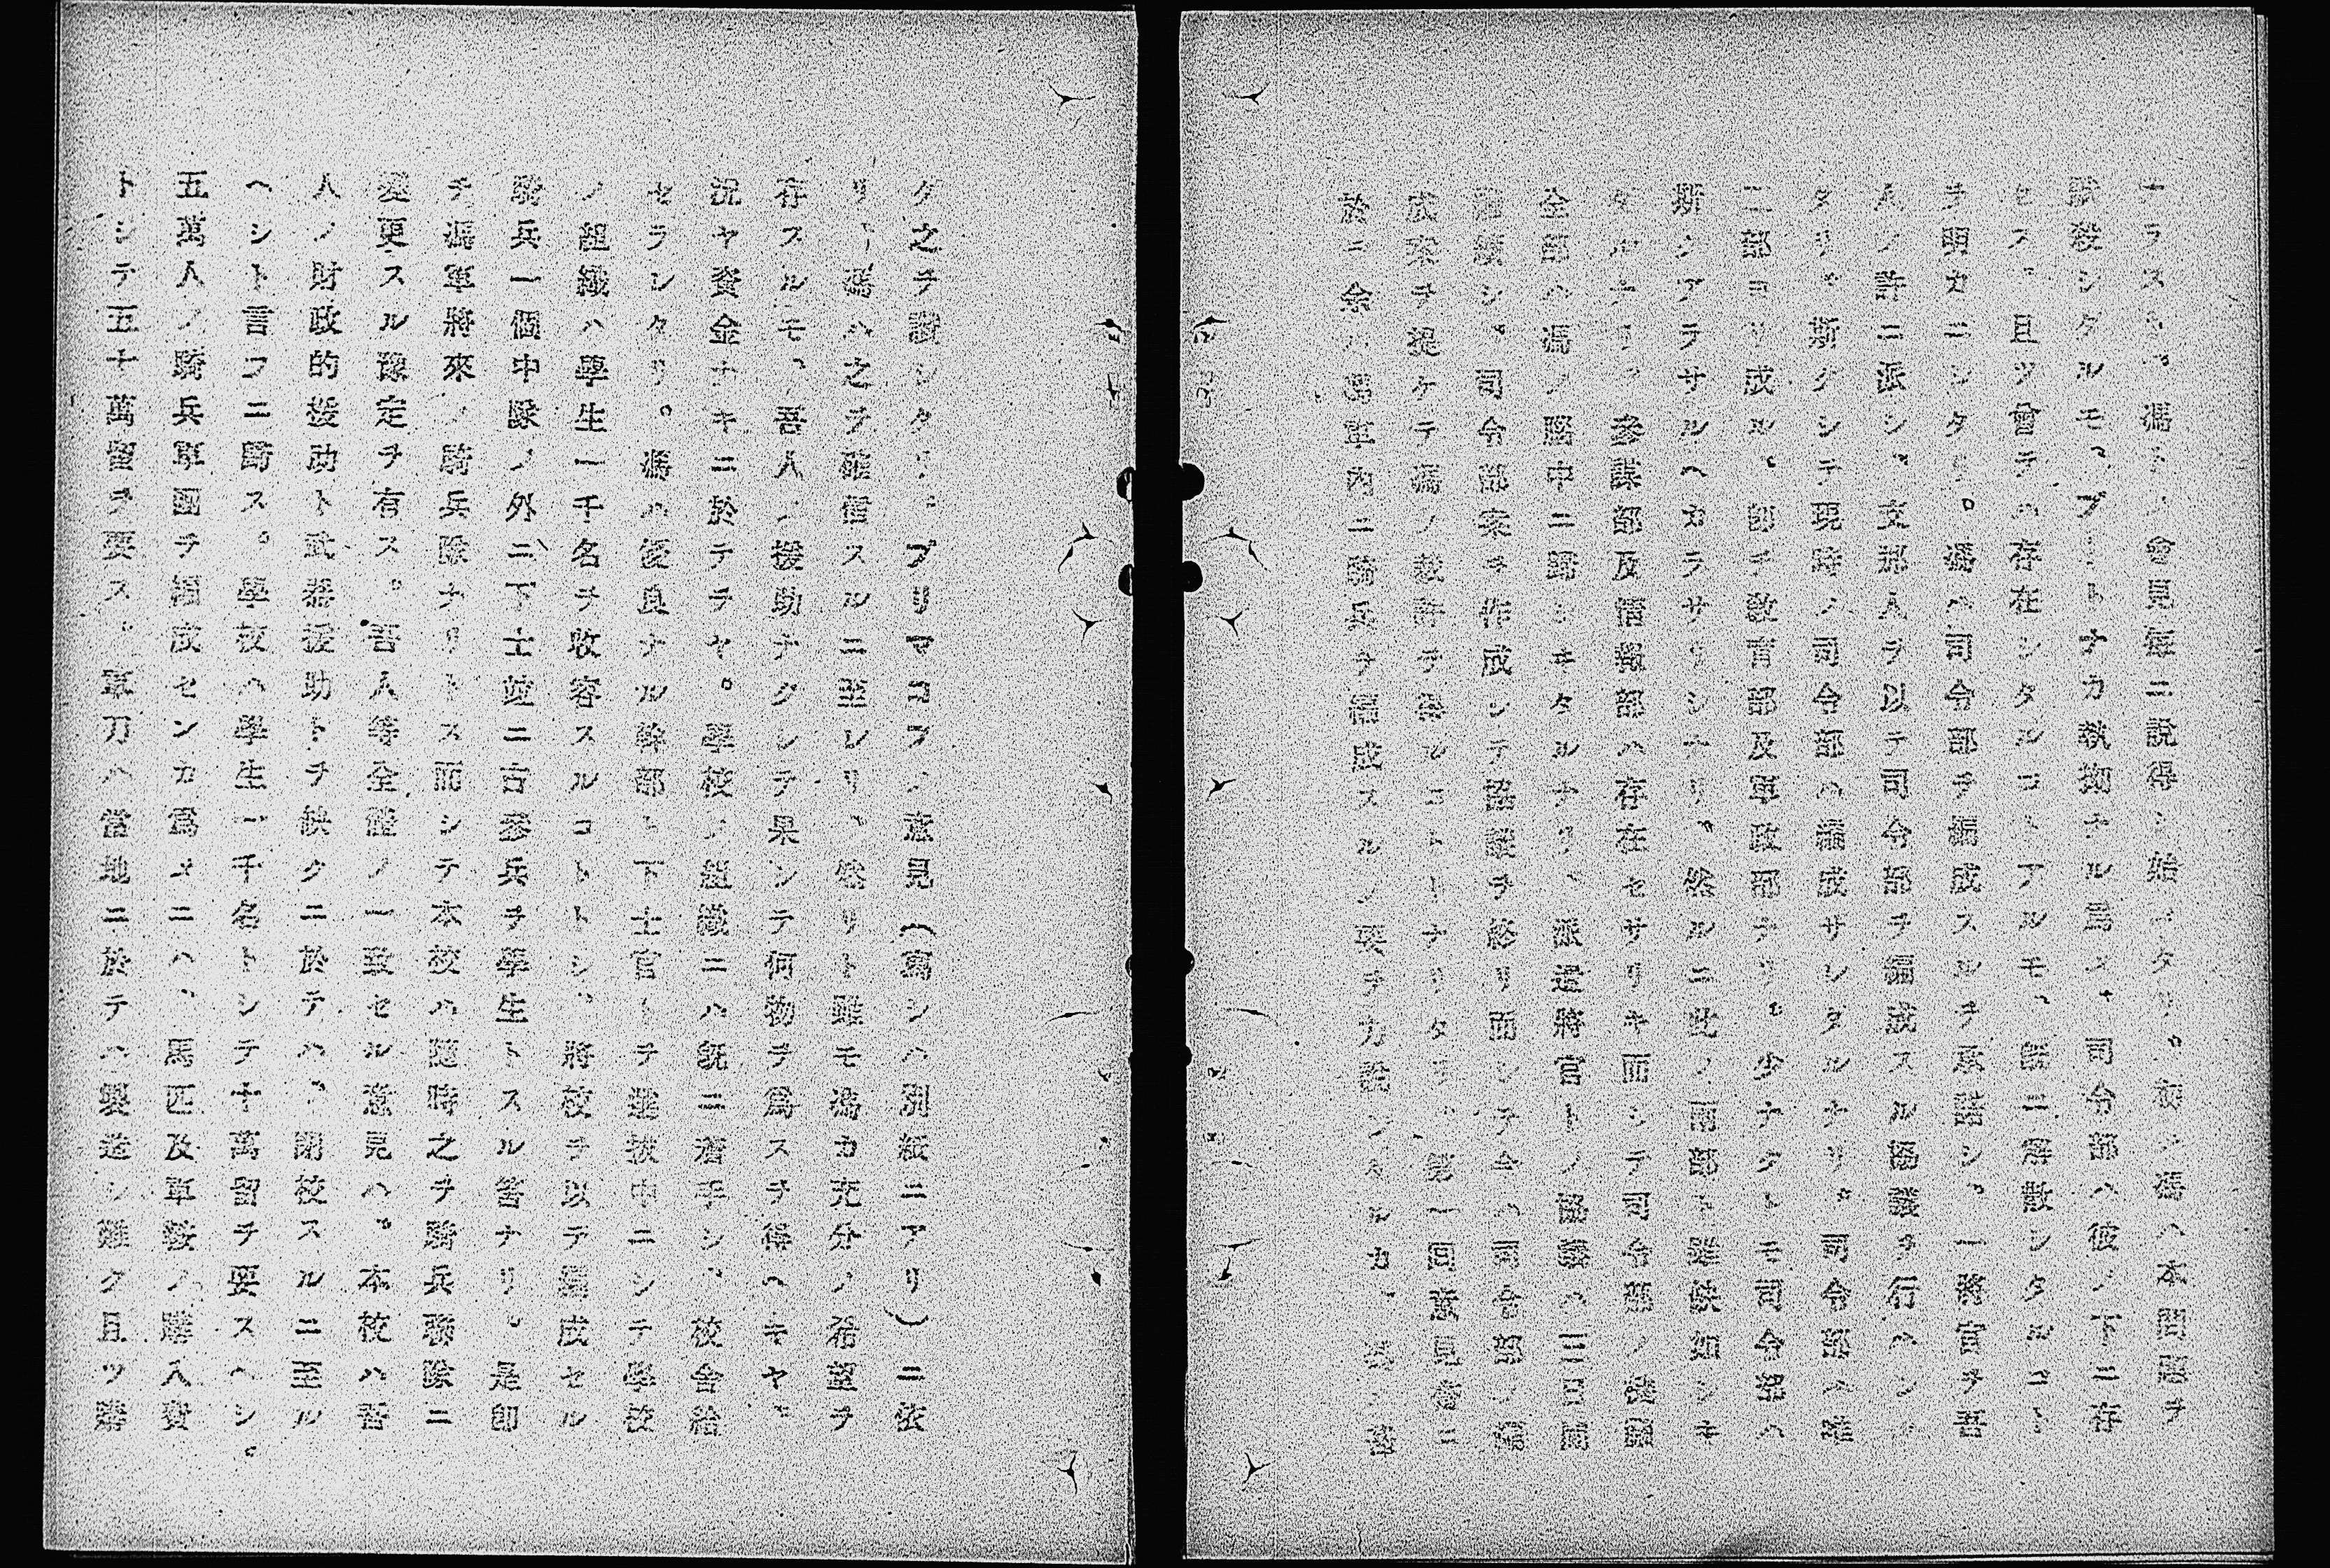 ナラスヤ。馮トノ會見毎ニ説得シ始メタリ。初メ馮ハ本問題ヲ
默殺シタルモ、ブートナカ執拗ナル爲メ、司令部ハ彼ノ下ニ存
セス、且ツ會テハ存在シタルコトアルモ、既ニ解散シタルコト
ヲ明カニシタリ。馮ハ司令部ヲ編成スルヲ承諾シ、一將官ヲ吾
人ノ許ニ派シ、支那人ヲ以テ司令部ヲ編成スル協議ヲ行ハシメ
タリ。斯クシテ現時ノ司令部ハ編成サレタルナリ。司令部ハ唯
二部ヨリ成ル、卽チ敎育部及軍政部ナリ。少ナクトモ司令部ハ
斯クアラサルヘカラサリシナリ。然ルニ此ノ兩部ト雖缺如シキ
タルナリ。參謀部及情報部ハ存在セサリキ而シテ司令部ノ機關
全部ハ馮ノ腦中ニ歸シキタルナリ、派遣將官トノ協議ハ三日間
繼續シ、司令部案ヲ作成シテ協議ヲ終リ而シテ今ハ司令部ノ編
成案ヲ提ケテ馮ノ裁許ヲ得ルコトトナリタリ、第一囘意見書ニ
於テ余ハ馮軍內ニ騎兵ヲ編成スルノ要ヲ力說シタルカ、
ク之ヲ謝シタリ。プリマコフノ意見(寫シハ別紙ニアリ)ニ依
リ、馮ハ之ヲ確信スルニ至レリ。然リト雖モ馮カ充分ノ希望ヲ
存スルモ、吾人ノ援助ナクシテ果シテ何物ヲ爲スヲ得ヘキヤ。
況ヤ資金ナキニ於テヲヤ。學校ノ組織ニハ既ニ着手シ、校舍給
セラレタリ。馮ハ優良ナル幹部ト下士官トヲ選拔中ニシテ學校
ノ組織ハ學生一千名ヲ收容スルコトトシ、將校ヲ以テ編成セル
騎兵一個中隊ノ外ニ下士竝ニ古參兵ヲ學生トスル筈ナリ。是卽
チ馮軍將來ノ騎兵隊ナリトス而シテ本校ハ隨時之ヲ騎兵聯隊ニ
變更スル豫定ヲ有ス。吾人等全體ノ一致セル意見ハ、本校ハ吾
人ノ財政的援助ト武器援助トヲ缺クニ於テハ、閉校スルニ至ル
ヘシト言フニ歸ス。學校ハ學生一千名トシテ十萬留ヲ要スヘシ。
五萬人ノ騎兵軍團ヲ編成センカ爲メニハ、馬匹及軍鞍ノ購入費
トシテ五十萬留ヲ要ス、軍刀ハ當地ニ於テハ製造シ難ク且ツ購